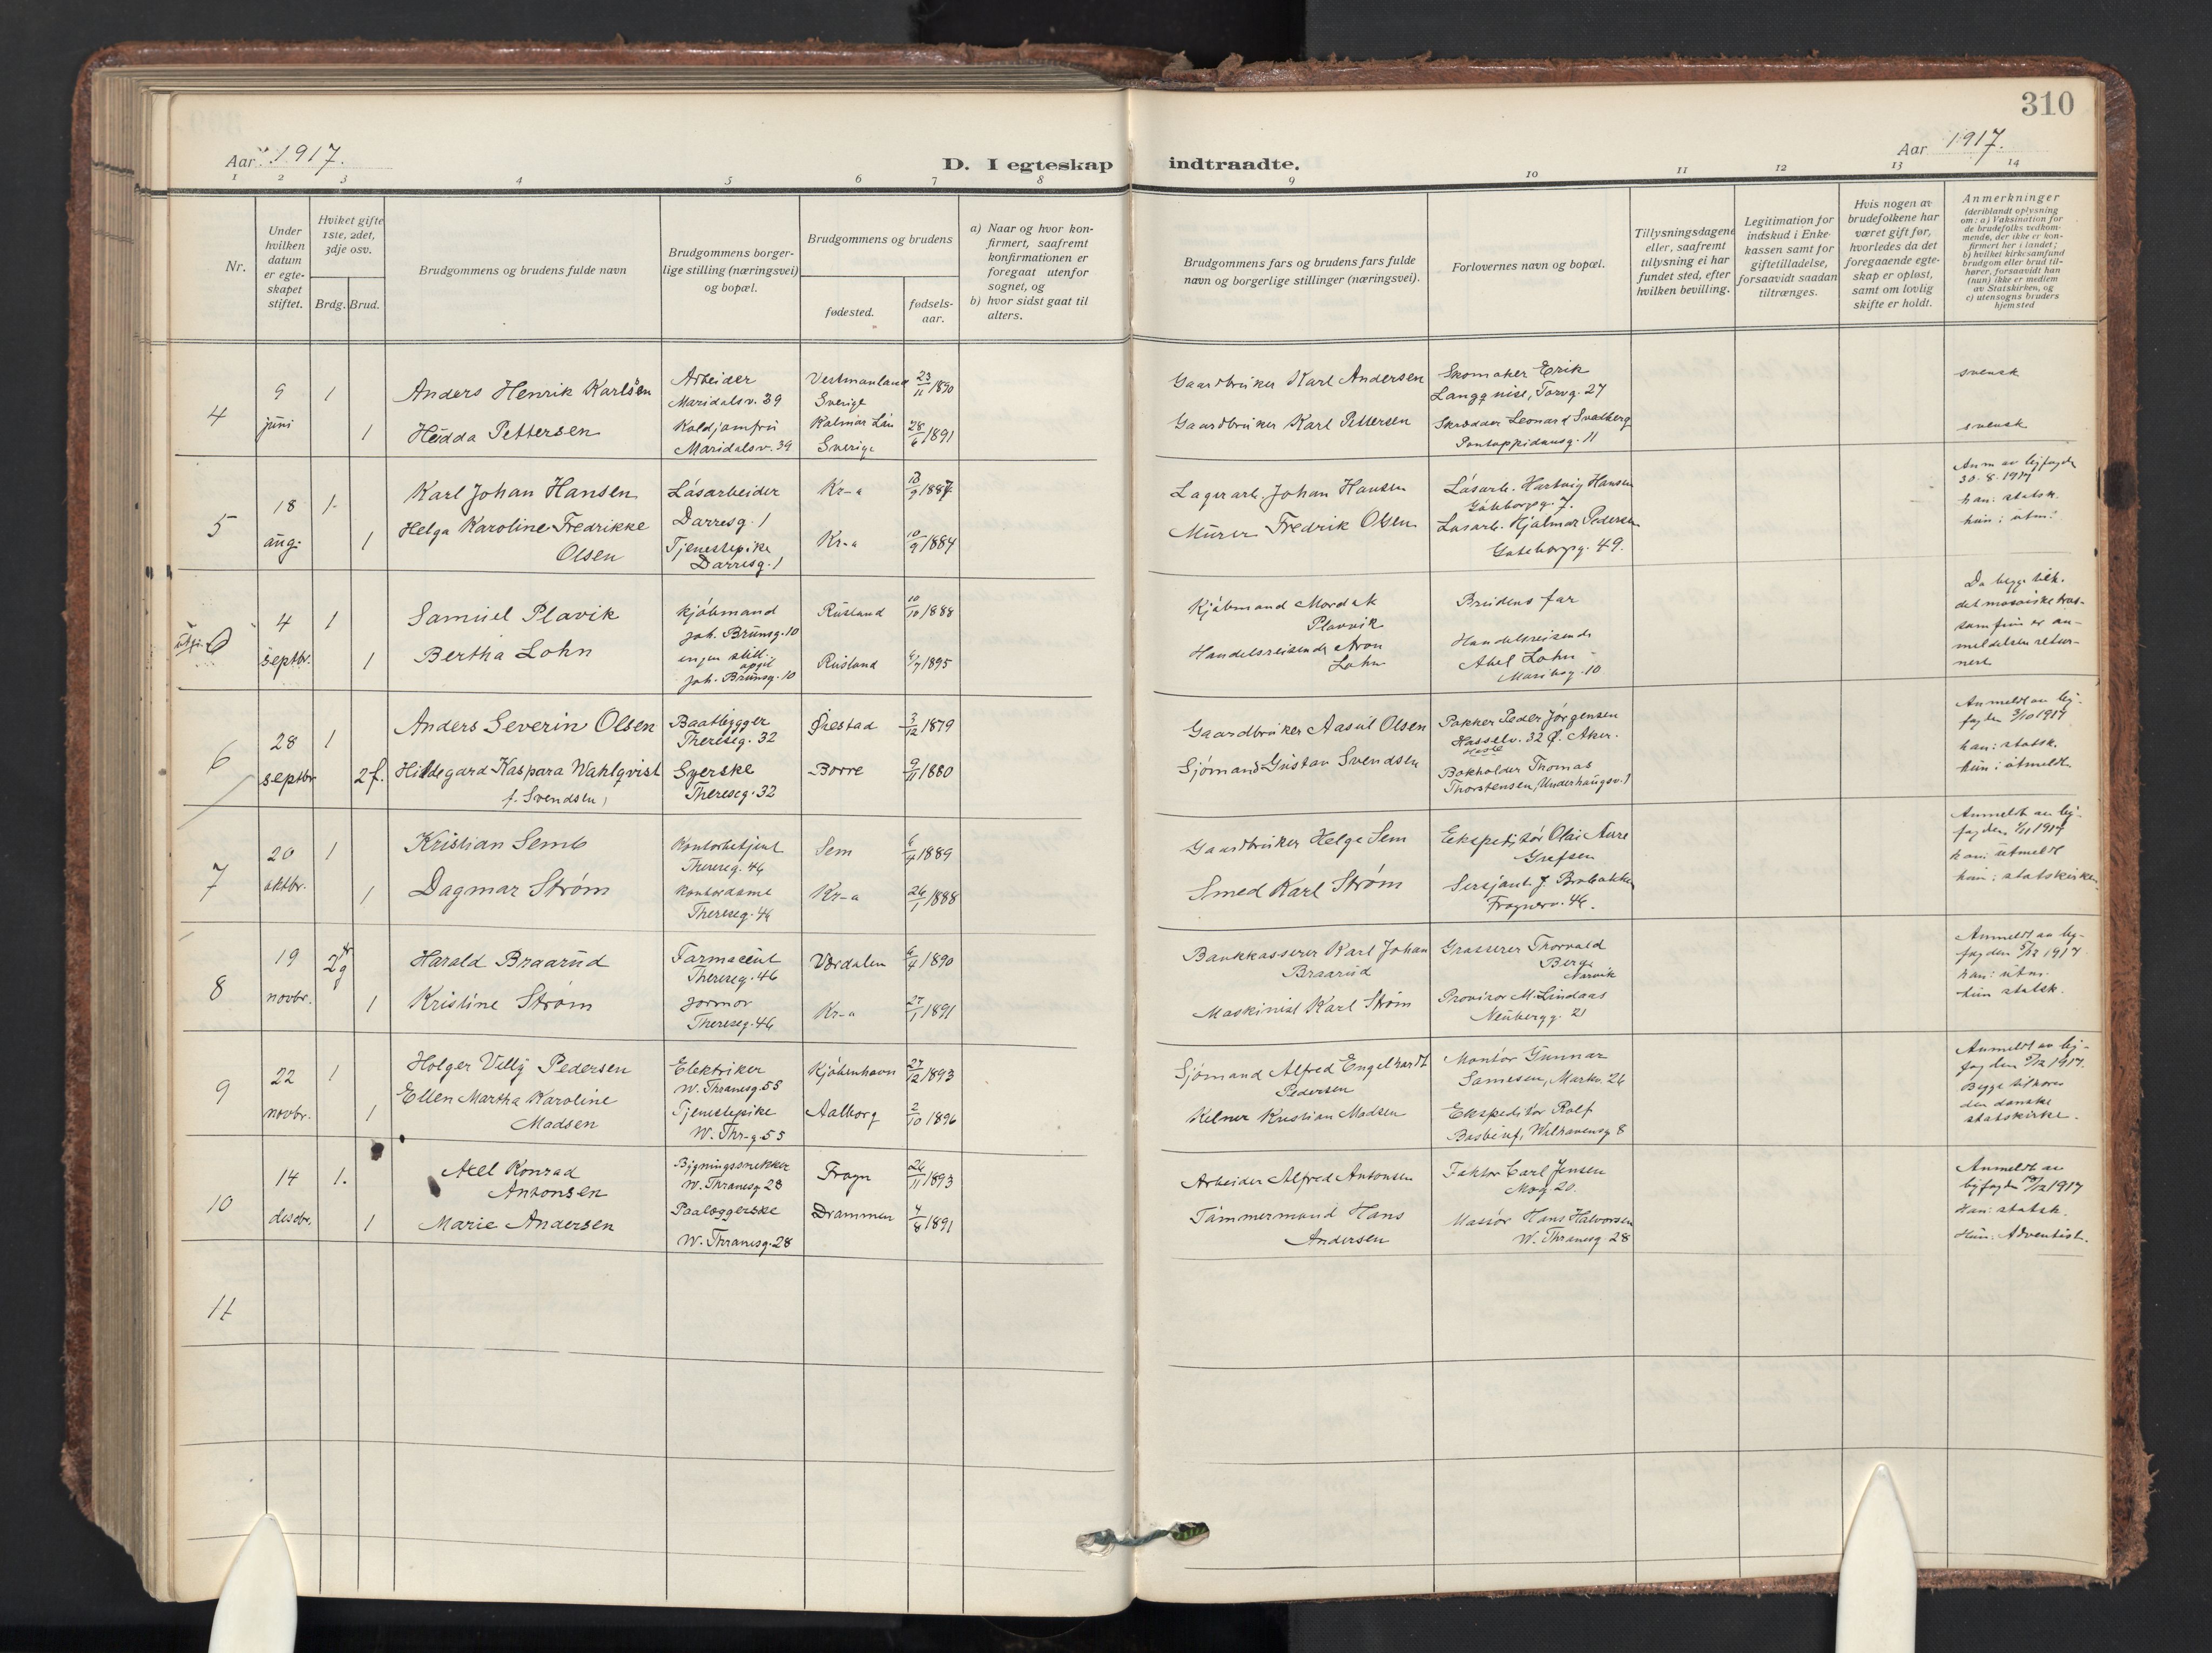 310
Aar 1917.
D. I egteskap indtraadte.
Aar 1917.
1 2 3 4 5 6 7 8 9 10 11 12 13 14
Nr.
Under
hvilken
datum
er egte-
skapet
stiftet.
Hvilket gifte
1ste, 2det,
3dje osv.
Brdg. Brud.
Brudgommens og brudens fulde navn
Brudgommens borger-
lige stilling (næringsvei)
og bopæl.
Brudgommens og brudens
fødested.
fødsels-
aar.
a) Naar og hvor kon-
firmert, saafremt
konfirmationen er
foregaat utenfor
sognet, og
b) hvor sidst gaat til
alters.
Brudgommens fars og brudens fars fulde
navn og borgerlige stillinger (næringsvei).
Forlovernes navn og bopæl.
Tillysningsdagene
eller, saafremt
tillysning ei har
fundet sted, efter
hvilken bevilling.
Legitimation for
indskud i Enke-
kassen samt for
giftetilladelse,
forsaavidt saadan
tiltrænges.
Hvis nogen av
brudefolkene har
været gift før,
hvorledes da det
foregaaende egte-
skap er opløst,
samt om lovlig
skifte er holdt.
Anmerkninger
(deriblandt oplysning
om: a) Vaksination for
de brudefolks vedkom-
mende, der ikke er kon-
firmert her i landet;
b) hvilket kirkesamfund
brudgom eller brud til-
hører, forsaavidt han
(hun) ikke er medlem
av Statskirken, og
c) utensogns bruders
hjemsted
4
9
juni
1
1
Anders Henrik Karlsen
Hedda Pettersen
Arbeider
Maridalsv. 39
Koldjomfru
Maridalsv. 39
Vestmanland
Sverige
Kalmar Län
Sverige
23/11 1890
28/6 1891
Gaardbruker Karl Andersen
Gaardbruker Karl Pettersen
Skomaker Erik
Langquise, Torvg. 27
Skrædder Leonard Svalberg
Pontoppidansg. 11
svensk
svensk
5
18
aug.
1
1
Karl Johan Hansen
Helga Karoline Fredrikke
Olsen
Låsarbeider
Darresg. 1
Tjenestepike
Darresg. 1
Kr-a
Kr-a
9 1887
10/9 1884
Lagerarb. Johan Hansen
Murer Fredrik Olsen
Låsarb. Hartvig Hansen
Gøteborgg. 7.
Låsarb. Hjalmar Pedersen
Gøteborgg. 49.
Anm av byfogden
30-8-1917
han: statsk.
hun: utm.
utgår 6
4
septbr.
1
1
Samuel Plavik
Bertha Lohn
Kjøbmand
Joh. Brunsg. 10
ingen still.
opgit
Joh. Brunsg. 10
Rusland
Rusland
10/10 1888
6/7 1895
Kjøbmand Mordak
Plavvik
Handelsreisende Aron
Lohn
Brudens far
Handelsreisende
Abel Lohn
Maribog. 10
Da begge tilh.
det mosaiske tros-
samfun er an-
meldelsen retur-
nert
6
28
septbr
1
2 f.
Anders Severin Olsen
Hildegard Kaspara Wahlqvist
f. Svendsen
Baatbygger
Thereseg. 32
Syerske
Thereseg. 32
Øiestad
Borre
3/12 1879
9/11 1880
Gaardbruker Aasul Olsen
Sjømand Gustav Svendsen
Pakker Peder Jørgensen
Hasselv. 32 Ø. Aker.
Bokholder Thomas
Thorstensen, Underhaugsv. 1
Anmeldt av by-
fogden 3/10 1917
han: statsk.
hun: utmeldt
7
20
oktbr.
1
1
Kristian Semb
Dagmar Strøm
Kontorbetjent
Thereseg. 46
Kontordame
Thereseg. 46
Sem
Kr-a
6/4 1889
26/1 1888
Gaardbruker Helge Sem
Smed Karl Strøm
Ekspeditør Olai Aure
Grefsen
Sersjant J. Brobakken
Frognerv. 46.
Anmeldt av by-
fogden 1/11 1917
han: utmeldt
hun: statskirken
8
19
novbr.
2 g
1
Harald Braarud
Kristine Strøm
Farmaceut
Thereseg. 46
Jormor
Thereseg. 46
Værdalen
Kr-a
6/4 1890
27/1 1891
Bankkasserer Karl Johan
Braarud
Maskinist Karl Strøm
Grosserer Thorvald
Berg
Narvik
Provisor M. Lindaas
Neubergg. 21
Anmeldt av by-
fogden 5/12 1917
han: utm.
hun statsk.
9
22
novbr.
1
1
Holger Villy Pedersen
Ellen Martha Karoline
Madsen
Elektriker
W. Thranesg. 55
Tjenestepike
W. Thr-g. 55
Kjøbenhavn
Aalborg
27/12 1893
2/10 1896
Sjømand Alfred Engelhardt
Pedersen
Kelner Kristian Madsen
Montør Gunnar
Samesen, Markv. 26
Ekspeditør Rolf
Welhavensg 8
Anmeldt av by-
fogden 5/12 1917.
Begge tilhører
den danske
statskirke.
10
14
desbr.
1.
1
Axel Konrad
Antonsen
Marie Andersen
Bygningssnekker
W. Thranesg 28
Paalæggerske
W. Thranesg. 28
Frogn
Drammen
26/11 1893
4/8 1891
Arbeider Alfred Antonsen
Tømmermand Hans
Andersen
Faktor Carl Jensen
Mog. 20.
Massør Hans Halvorsen
W. Thranesg 28
Anmeldt av
byfogden 19/12 1917
Han: statsk.
Hun: Adventist.
11